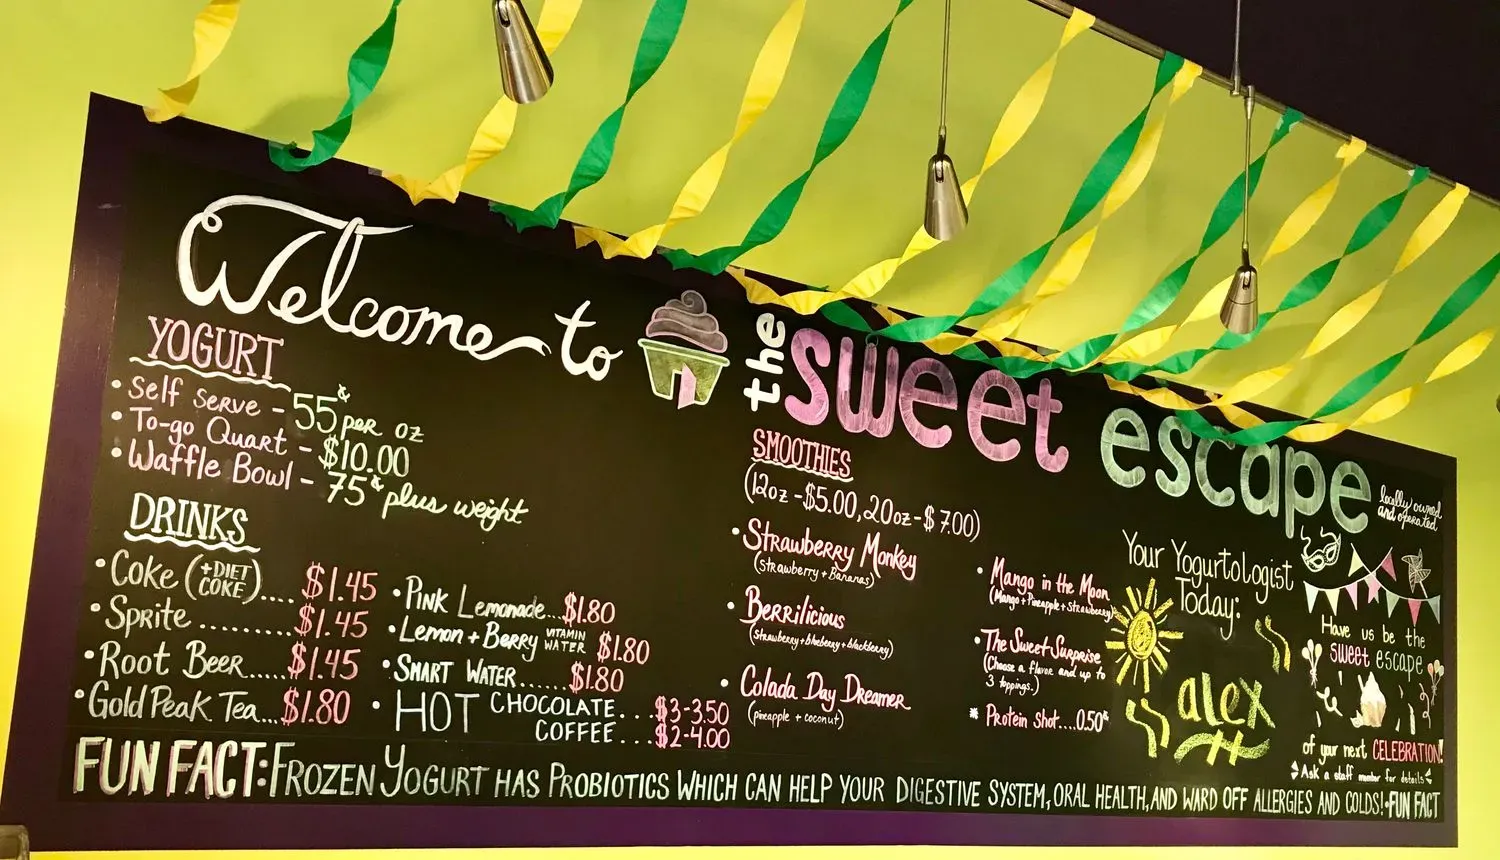 Welcome to
the sweet escape
locally owned
and operated
YOGURT
• Self Serve - 55¢ per oz
• To-go Quart - $10.00
• Waffle Bowl - 75¢ plus weight
DRINKS
• Coke (+DIET COKE).... $1.45
• Sprite .......... $1.45
• Root Beer...... $1.45
• Gold Peak Tea... $1.80
• Pink Lemonade... $1.80
• Lemon + Berry VITAMIN WATER $1.80
• Smart Water...... $1.80
• HOT CHOCOLATE... $3-3.50
COFFEE... $2-4.00
SMOOTHIES
(12oz - $5.00, 20oz - $7.00)
• Strawberry Monkey
(strawberry + Bananas)
• Berrilicious
(strawberry + blueberry + blackberry)
• Colada Day Dreamer
(pineapple + coconut)
• Mango in the Moon
(Mango + Pineapple + Strawberry)
• The Sweet Surprise
(Choose a flavor and up to
3 toppings.)
* Protein Shot....0.50¢
Your Yogurtologist
Today:
alex
Have us be the
sweet escape
of your next CELEBRATION!
Ask a staff member for details
FUN FACT: FROZEN YOGURT HAS PROBIOTICS WHICH CAN HELP YOUR DIGESTIVE SYSTEM, ORAL HEALTH, AND WARD OFF ALLERGIES AND COLDS! • FUN FACT